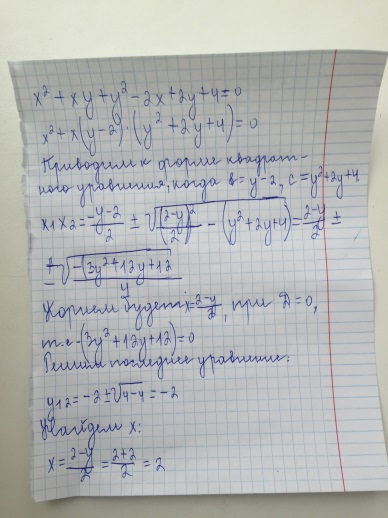 x² + xy + y² - 2x + 2y + 4 = 0
x² + x(y-2) · (y² + 2y + 4) = 0
Приводим к форме квадрат-
ного уравнения, когда в = y-2, c = y² + 2y + 4
x₁x₂ = -y-2/2 ± √(2-y)²/2 - (y² + 2y + 4) = 2-y/2 ±
± √-(3y² + 12y + 12/4
Корнем будет x = 2-y/2, при D = 0,
т.е -(3y² + 12y + 12) = 0
Решим последнее уравнение:
y₁₂ = -2 ± √4-4 = -2
Найдем x:
x = 2-y/2 = 2+2/2 = 2